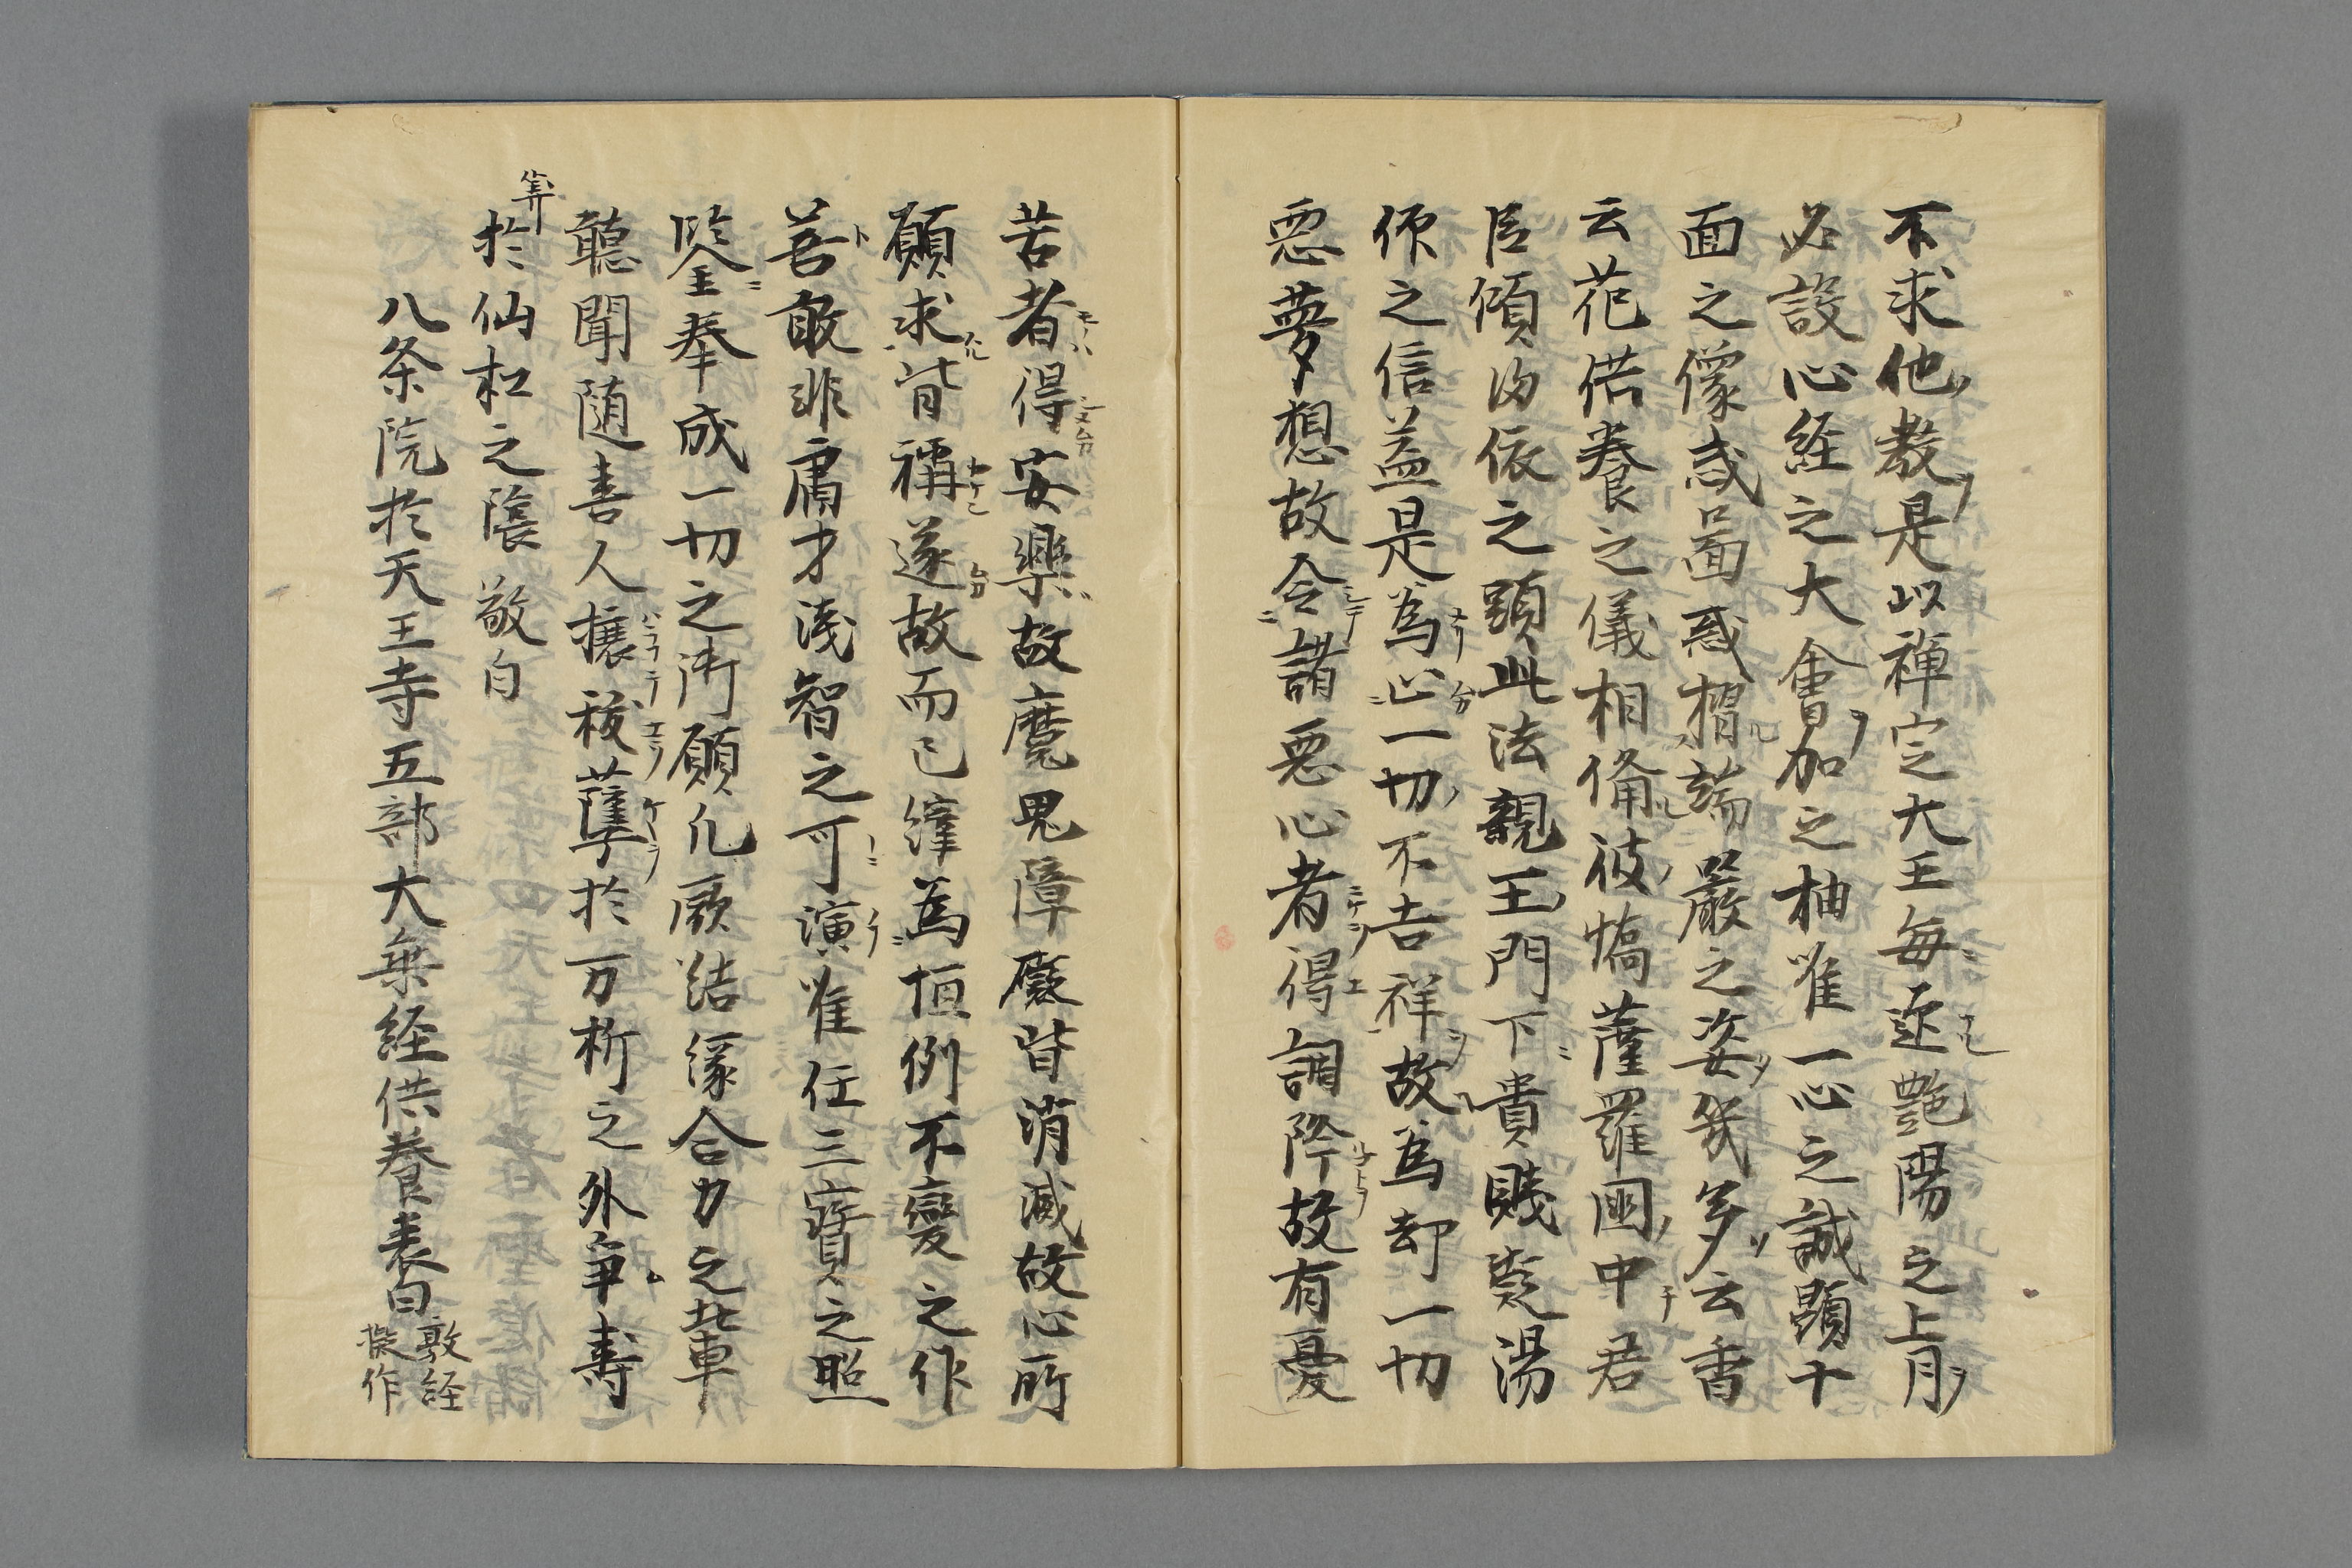 不求他教是以禅定大王毎迎艶陽之上月
必設心経之大會加之抽唯一心之誠顕十
面之像或畐或摺端嚴之姿幾多云香
云花偌養之儀相俻彼憍薩羅國中君
臣傾汝依之顕此法親王門下貴賤凳湯
仰之信益是為心一切不吉祥故為却一切
惡夢想故令諸惡心者得調除故有憂
苦者得安樂故魔鬼障礙皆消滅故心所
願求皆稱遂故而已縡為恒例不變之作
善敢非庸才淺智之可演唯任三寳之照
鑒奉成一切之御願凢厥結縁合力之輩
聽聞随喜人攘禍孽於万祈之外争壽
筭於仙松之蔭 敬白
八条院於天王寺五部大乗経供養表白 敦経擬作